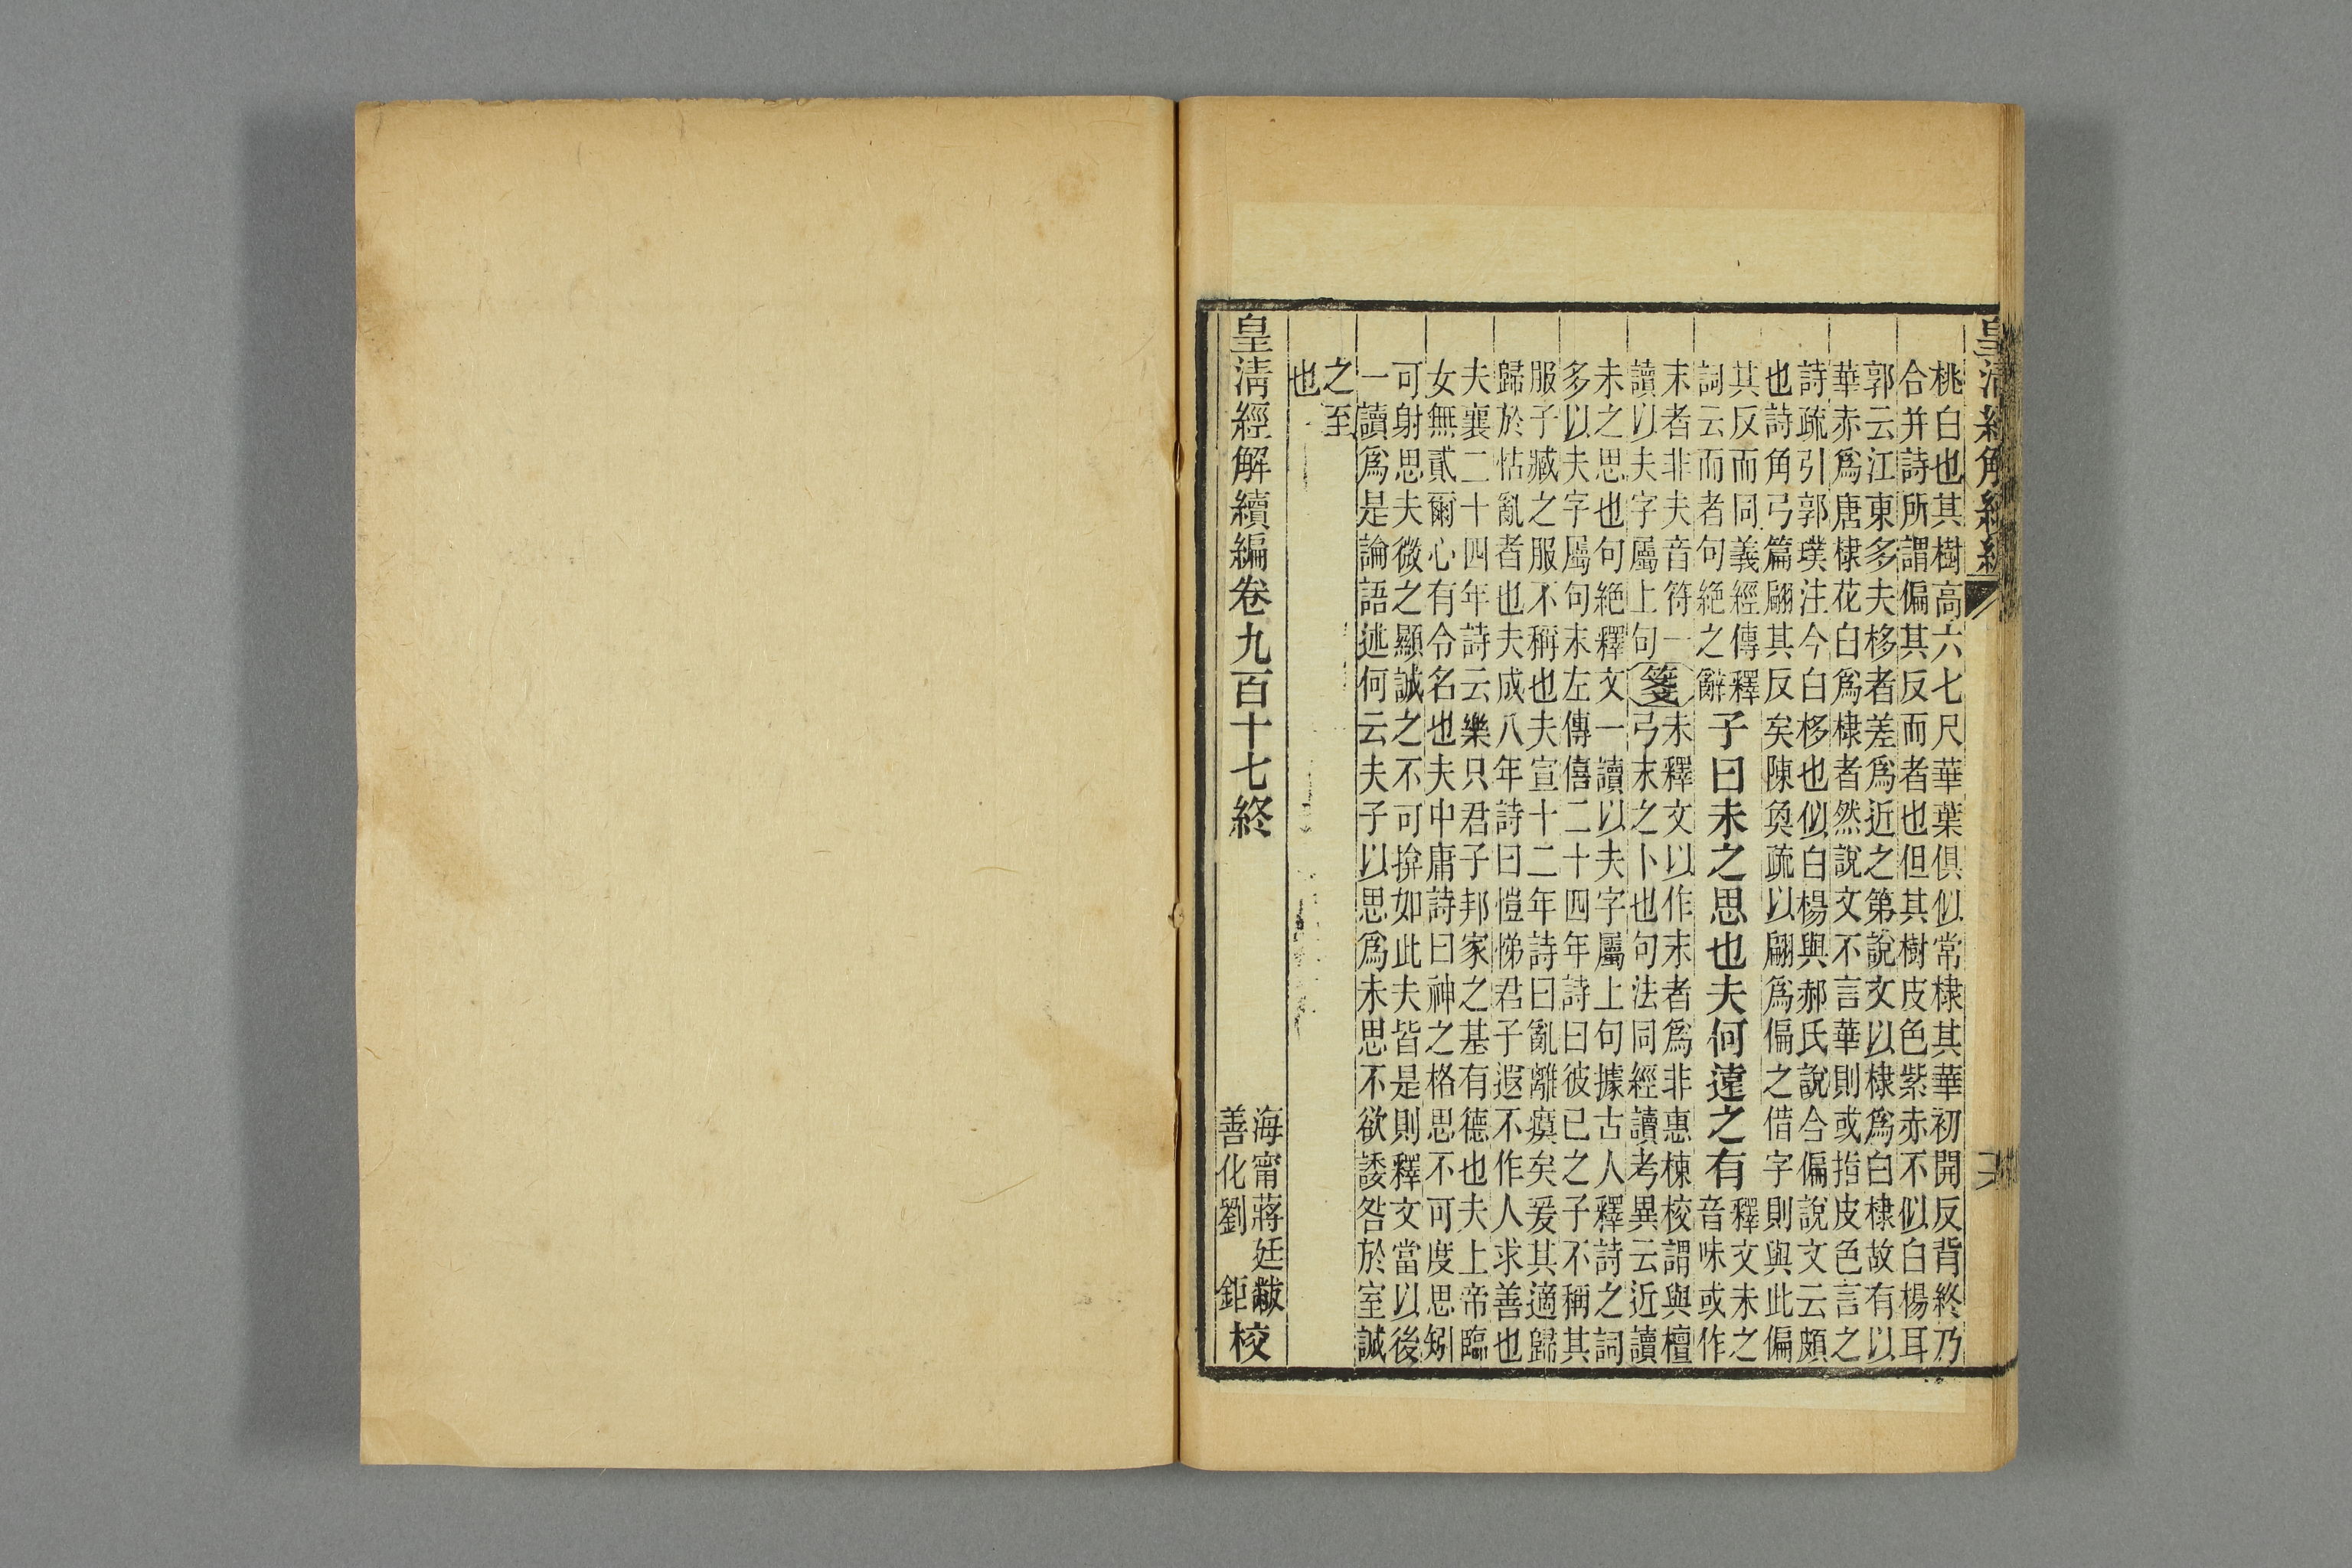 皇清經解續編
桃白也其樹高六七尺華葉俱似常棣其華初開反背終乃
合并詩所謂偏其反而者也但其樹皮色紫赤不似白楊耳
郭云江東多夫栘者差爲近之第說文以棣爲白棣故有以
華赤爲唐棣花白爲棣者然說文不言華則或指皮色言之
詩疏引郭璞注今白栘也似白楊與郝氏說合偏說文云頗
也詩角弓篇翩其反矣陳奐疏以翩爲偏之借字則與此偏
其反而同義經傳釋
詞云而者句絶之辭
子曰未之思也夫何遠之有
釋文未之
音味或作
末者非夫音符一
讀以夫字屬上句
箋
未釋文以作末者爲非惠棟校謂與檀
弓末之卜也句法同經讀考異云近讀
未之思也句絶釋文一讀以夫字屬上句據古人釋詩之詞
多以夫字屬句末左傳僖二十四年詩曰彼已之子不稱其
服子臧之服不稱也夫宣十二年詩曰亂離瘼矣爰其適歸
歸於怙亂者也夫成八年詩曰愷悌君子遐不作人求善也
夫襄二十四年詩云樂只君子邦家之基有德也夫上帝臨
女無貳爾心有令名也夫中庸詩曰神之格思不可度思矧
可射思夫微之顯誠之不可揜如此夫皆是則釋文當以後
一讀爲是論語述何云夫子以思爲未思不欲諉咎於室誠
之至
也
皇清經解續編卷九百十七終
海甯蔣廷黻
善化劉鉅
校